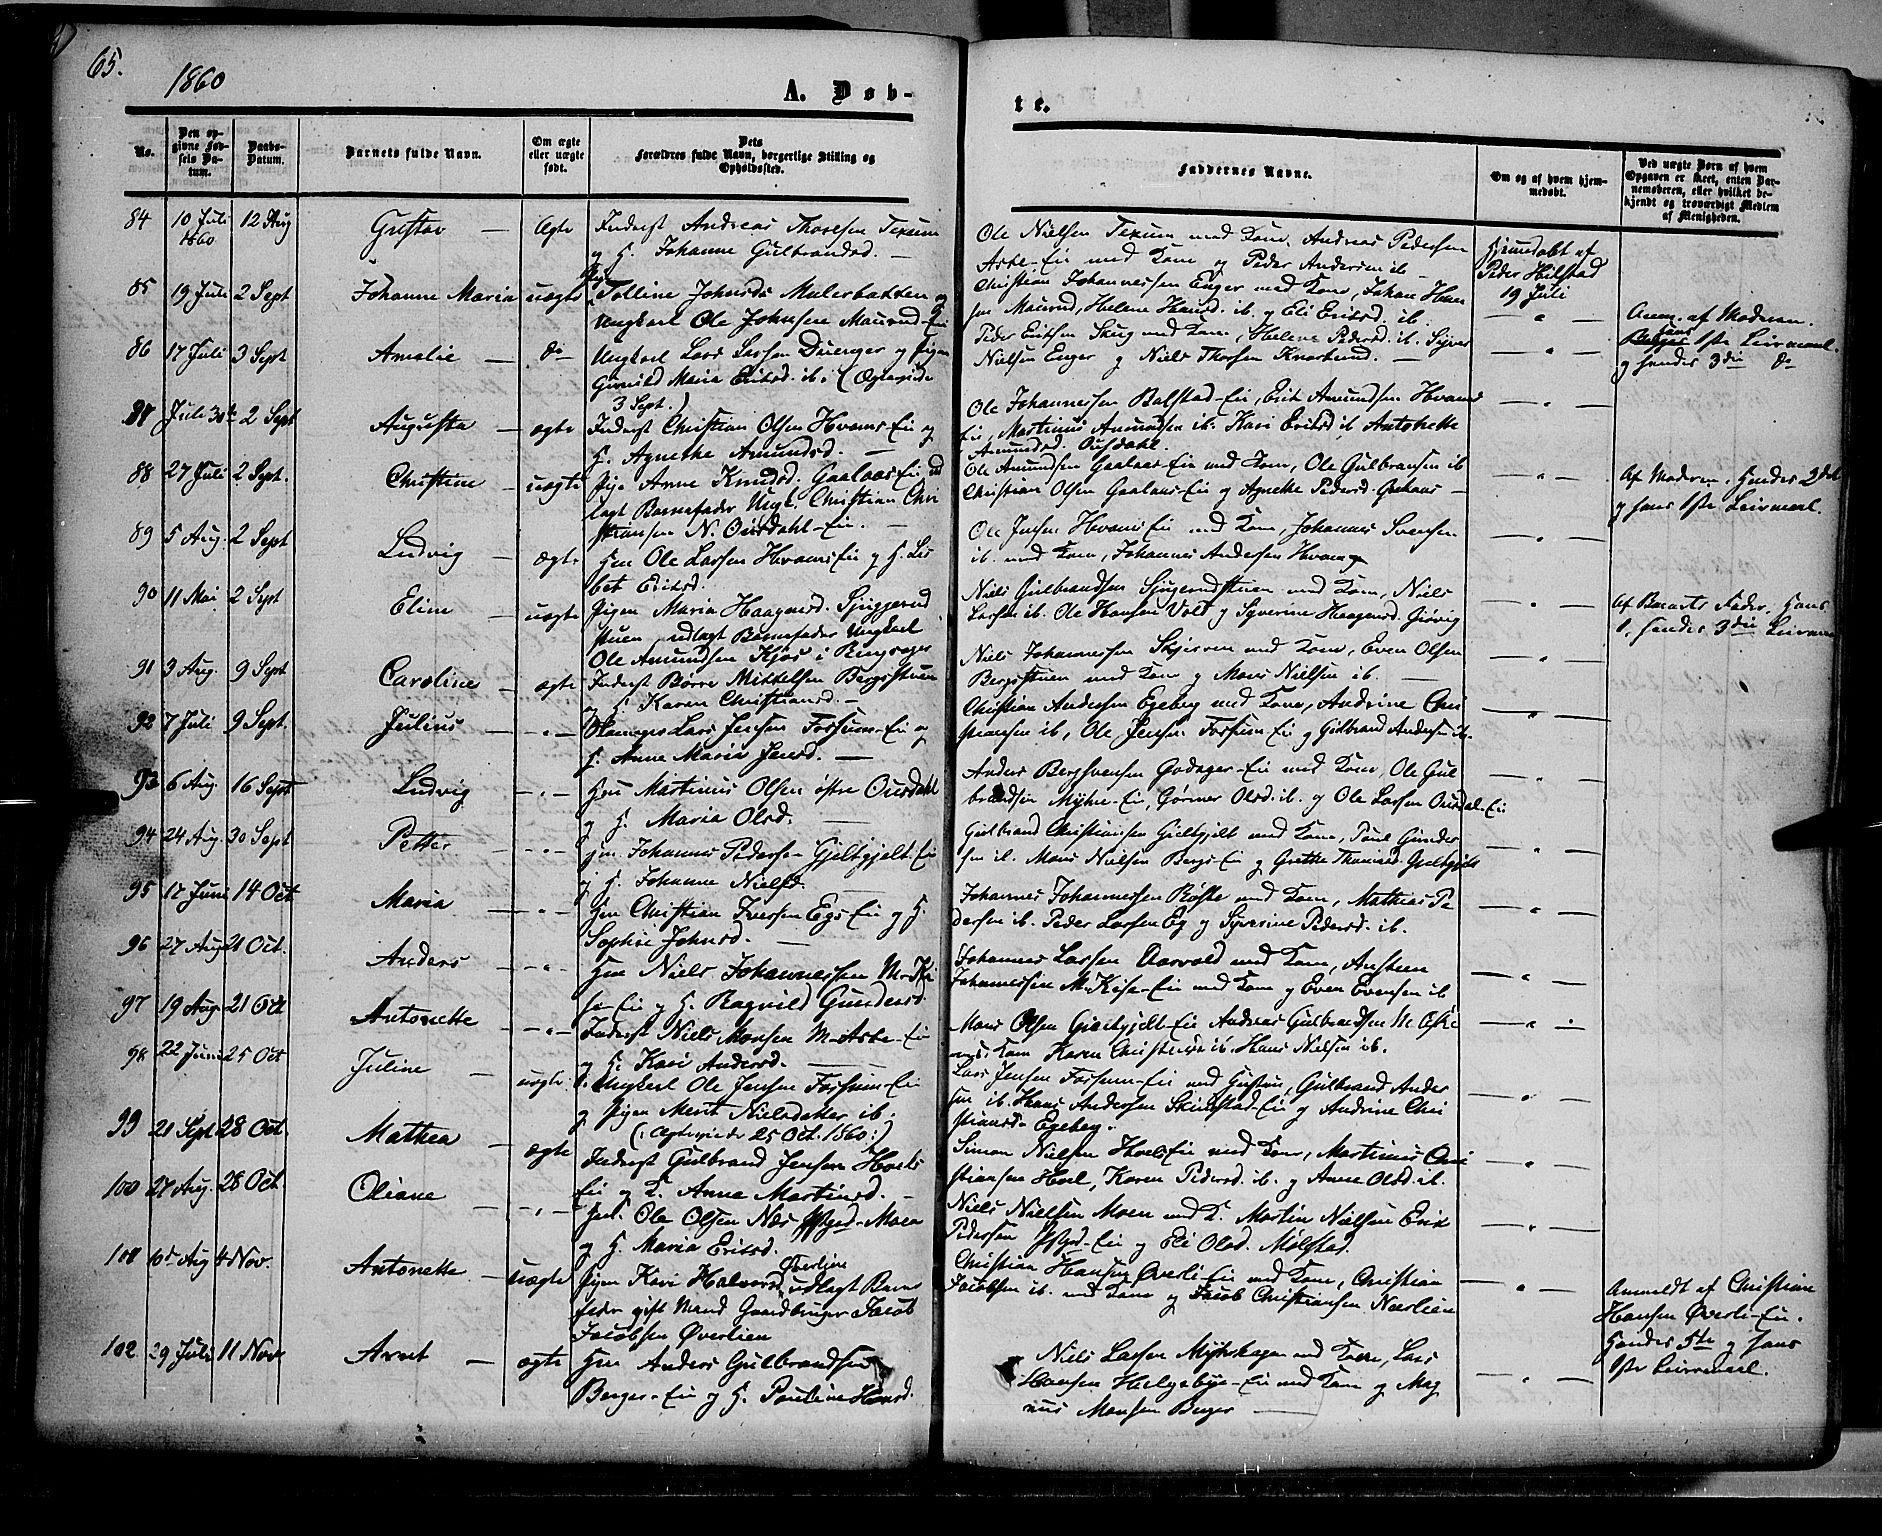 65.
1860
A. Døb-
te.
No.
Den op-
givne Fød-
sels Da-
tum.
Daabs-
Datum.
Barnets fulde Navn.
Om ægte
eller uægte
født.
Dets
Forældres fulde Navn, borgerlige Stilling og
Opholdssted.
Faddernes Navne.
Om og af hvem hjem-
medøbt.
Ved uægte Børn af hvem
Opgaven er skeet, enten Bar-
nemoderen, eller hvilket be-
kjendt og troværdigt Medlem
af Menigheden.
84 10 Juli 1860 12 Aug Gustav — Ægte Inderst Andreas Thoresen
og H. Johanne Gulbrandsd. —
Ole Nielsen med Kone, Andreas Pedersen
Arbe-Ei med Kone og Peder Andersen ib —
Hjemdøbt af
Peder Hilstad
19 Juli
85 19 Juli 2 Sept Johanne Maria uægte Pige Johnsd.
Ungkarl Ole Johnsen Maurud-Ei
Christian Johannessen Enger med Kone, Johan Han
sen Maurud, Helene Hansd. ib. og Eli Eriksd. ib.
Anm. af Moderen.
86 17 Juli 3 Sept Amalie — do Ungkarl Lars Larsen og Pigen
Gunild Maria Eriksd. ib. (Ægteviede
3 Sept.)
Peder Eriksen Skug med Kone, Helene Pedersd. ib. Syver
Nielsen Enger og Niels Thorsen —
Hans 1ste Leirmaal.
og hendes 3die do
87 Juli 30te 2 Sept Augusta — ægte Inderst Christian Olsen Hvams-Ei og
H. Agnethe Amundsd. —
Ole Johannessen Balstad-Ei, Erik Amundsen Hvams
Ei, Martinus Amundsen ib. Kari Eriksd. ib Antonette
Amundsd. Ousdahl.
88 27 Juli 2 Sept. Christine — uægte Pige Anne Knudsd. Gaalaas-Ei ud
lagt Barnefader Ungk. Christian Chri
stiansen N. Ousdahl-Ei. —
Ole Amundsen Gaalaas-Ei med Kone, Ole Gulbransen ib
Christian Olsen Gaalaas-Ei og Agnethe Pedersd. —
Af Moderen. Hendes 2det
og hans 1ste Leirmaal.
89 5 Aug. 2 Sept Ludvig — ægte Hm Ole Larsen Hvams-Ei og H. Lis
bet Eriksd.
Ole Jensen Hvams Ei med Kone, Johannes Svensen
ib. med Kone, Johannes Andersen Hvam
90 11 Mai 2 Sept Eline — uægte Pigen Maria Haagensd.
stuen, udlagt Barnefader Ungkarl
Ole Amundsen Kjos i Ringsager
Niels Gulbrandsen med Kone, Niels
Larsen ib. Ole Hansen Volt og Syverine Haagensd.
Af Barnets Fader. Hans
1. hendes 3die Leirmaal
91 3 Aug. 9 Sept Caroline — ægte Inderst Børre Mikkelsen Bergsstuen
og H. Karen Christiansd. —
Niels Johannessen med Kone, Even Olsen
Bergsstuen med Kone og Mons Nielsen ib. —
92 7 Juli 9 Sept. Julius — — " — Lars Jensen Forsum-Ei og
H. Anne Maria Jensd. —
Christian Andersen Egeberg med Kone, Andrine Chri
stiansen ib, Ole Jensen Forsum-Ei og Gulbrand Andersen ib.
93 6 Aug. 16 Sept Ludvig — " — Hm Martinus Olsen østre Ousdahl
og H. Maria Olsd. —
Anders Bergsvensen Godager-Ei med Kone, Ole Gul
brandsen Myhre-Ei, Olsd. ib. og Ole Larsen Ousdal-Ei
94 24 Aug. 30 Sept Petter — — " — Hm. Johannes Pedersen Gjeltgjelt-Ei
og H. Johanne Nielsd.
Gulbrand Christiansen med Kone, Poul Gunder
sen ib. Mons Nielsen Bergs-Ei og Grethe
95 17 Juni 14 Oct Maria — — " — Hm Christian Iversen Egs-Ei og H.
Sophie Johnsd. —
Johannes Johannessen Røste med Kone, Mathias Pe
dersen ib. Peder Larsen Eg og Syverine Pedersd. ib.
96 27 Aug 21 Oct. Anders — — " — Hm Niels Johannessen M-Ki
se-Ei og H. Ragnild Gundersd.
Johannes Larsen Aarvold med Kone, Austeen
Johannessen M. Kise-Ei med Kone og Even Evensen ib
97 19 Aug. 21 Oct Antonette — " — Inderst Niels Monsen M-Arbe-Ei
og H. Kari Andersd. —
Mons Olsen Andreas Gulbrandsen
med Kone Karen ib. Hans Nielsen ib.
98 22 Juni 25 Oct Juline — uægte. Ungkarl Ole Jensen Forsum-Ei
og Pigen Merit Nielsdatter ib.
(: Ægteviede 25 Oct. 1860 :)
Lars Jensen Forsum-Ei med Hustru, Gulbrand Ander
sen ib. Hans Andersen og Andrine Chri
stiansd. Egeberg.
99 21 Sept 28 Oct. Mathea — ægte Inderst Gulbrand Jensen Hoels
Ei og K. Anne Martinsd. —
Simon Nielsen Hoels Ei med Kone, Martinus Chri
stiansen Hoel, Karen Pedersd. ib. og Anne Olsd. ib.
100 27 Aug. 28 Oct. Oliane — " — Ole Olsen Næs Moen
og H. Maria Eriksd.
Niels Nielsen Moen med K. Martin Nielsen Erik
Pedersen og Eli Olsd. Mølstad.
101 10de Aug 4 Nov. Antonette — uægte Pigen Kari Halvorsd. Øverlien udlagt Barne
fader gift Mand Gaardbruger Jacob
Jacobsen Øverlien
Christian Hansen Øverli-Ei med Kone, Christian
Jacobsen ib. med Kone og Jacob Christiansen Nærlien
Anmeldt af Christian
Hansen Øverli-Ei.
Hendes 5te og hans
1ste Leirmaal.
102 29 Juli 11 Nov Arnt — ægte Hm Anders Gulbrandsen
Berger-Ei og H. Pauline Hansd.
Niels Larsen med Kone, Lars
Hansen Helgebye-Ei med Kone og Mag
nus Monsen Berger —